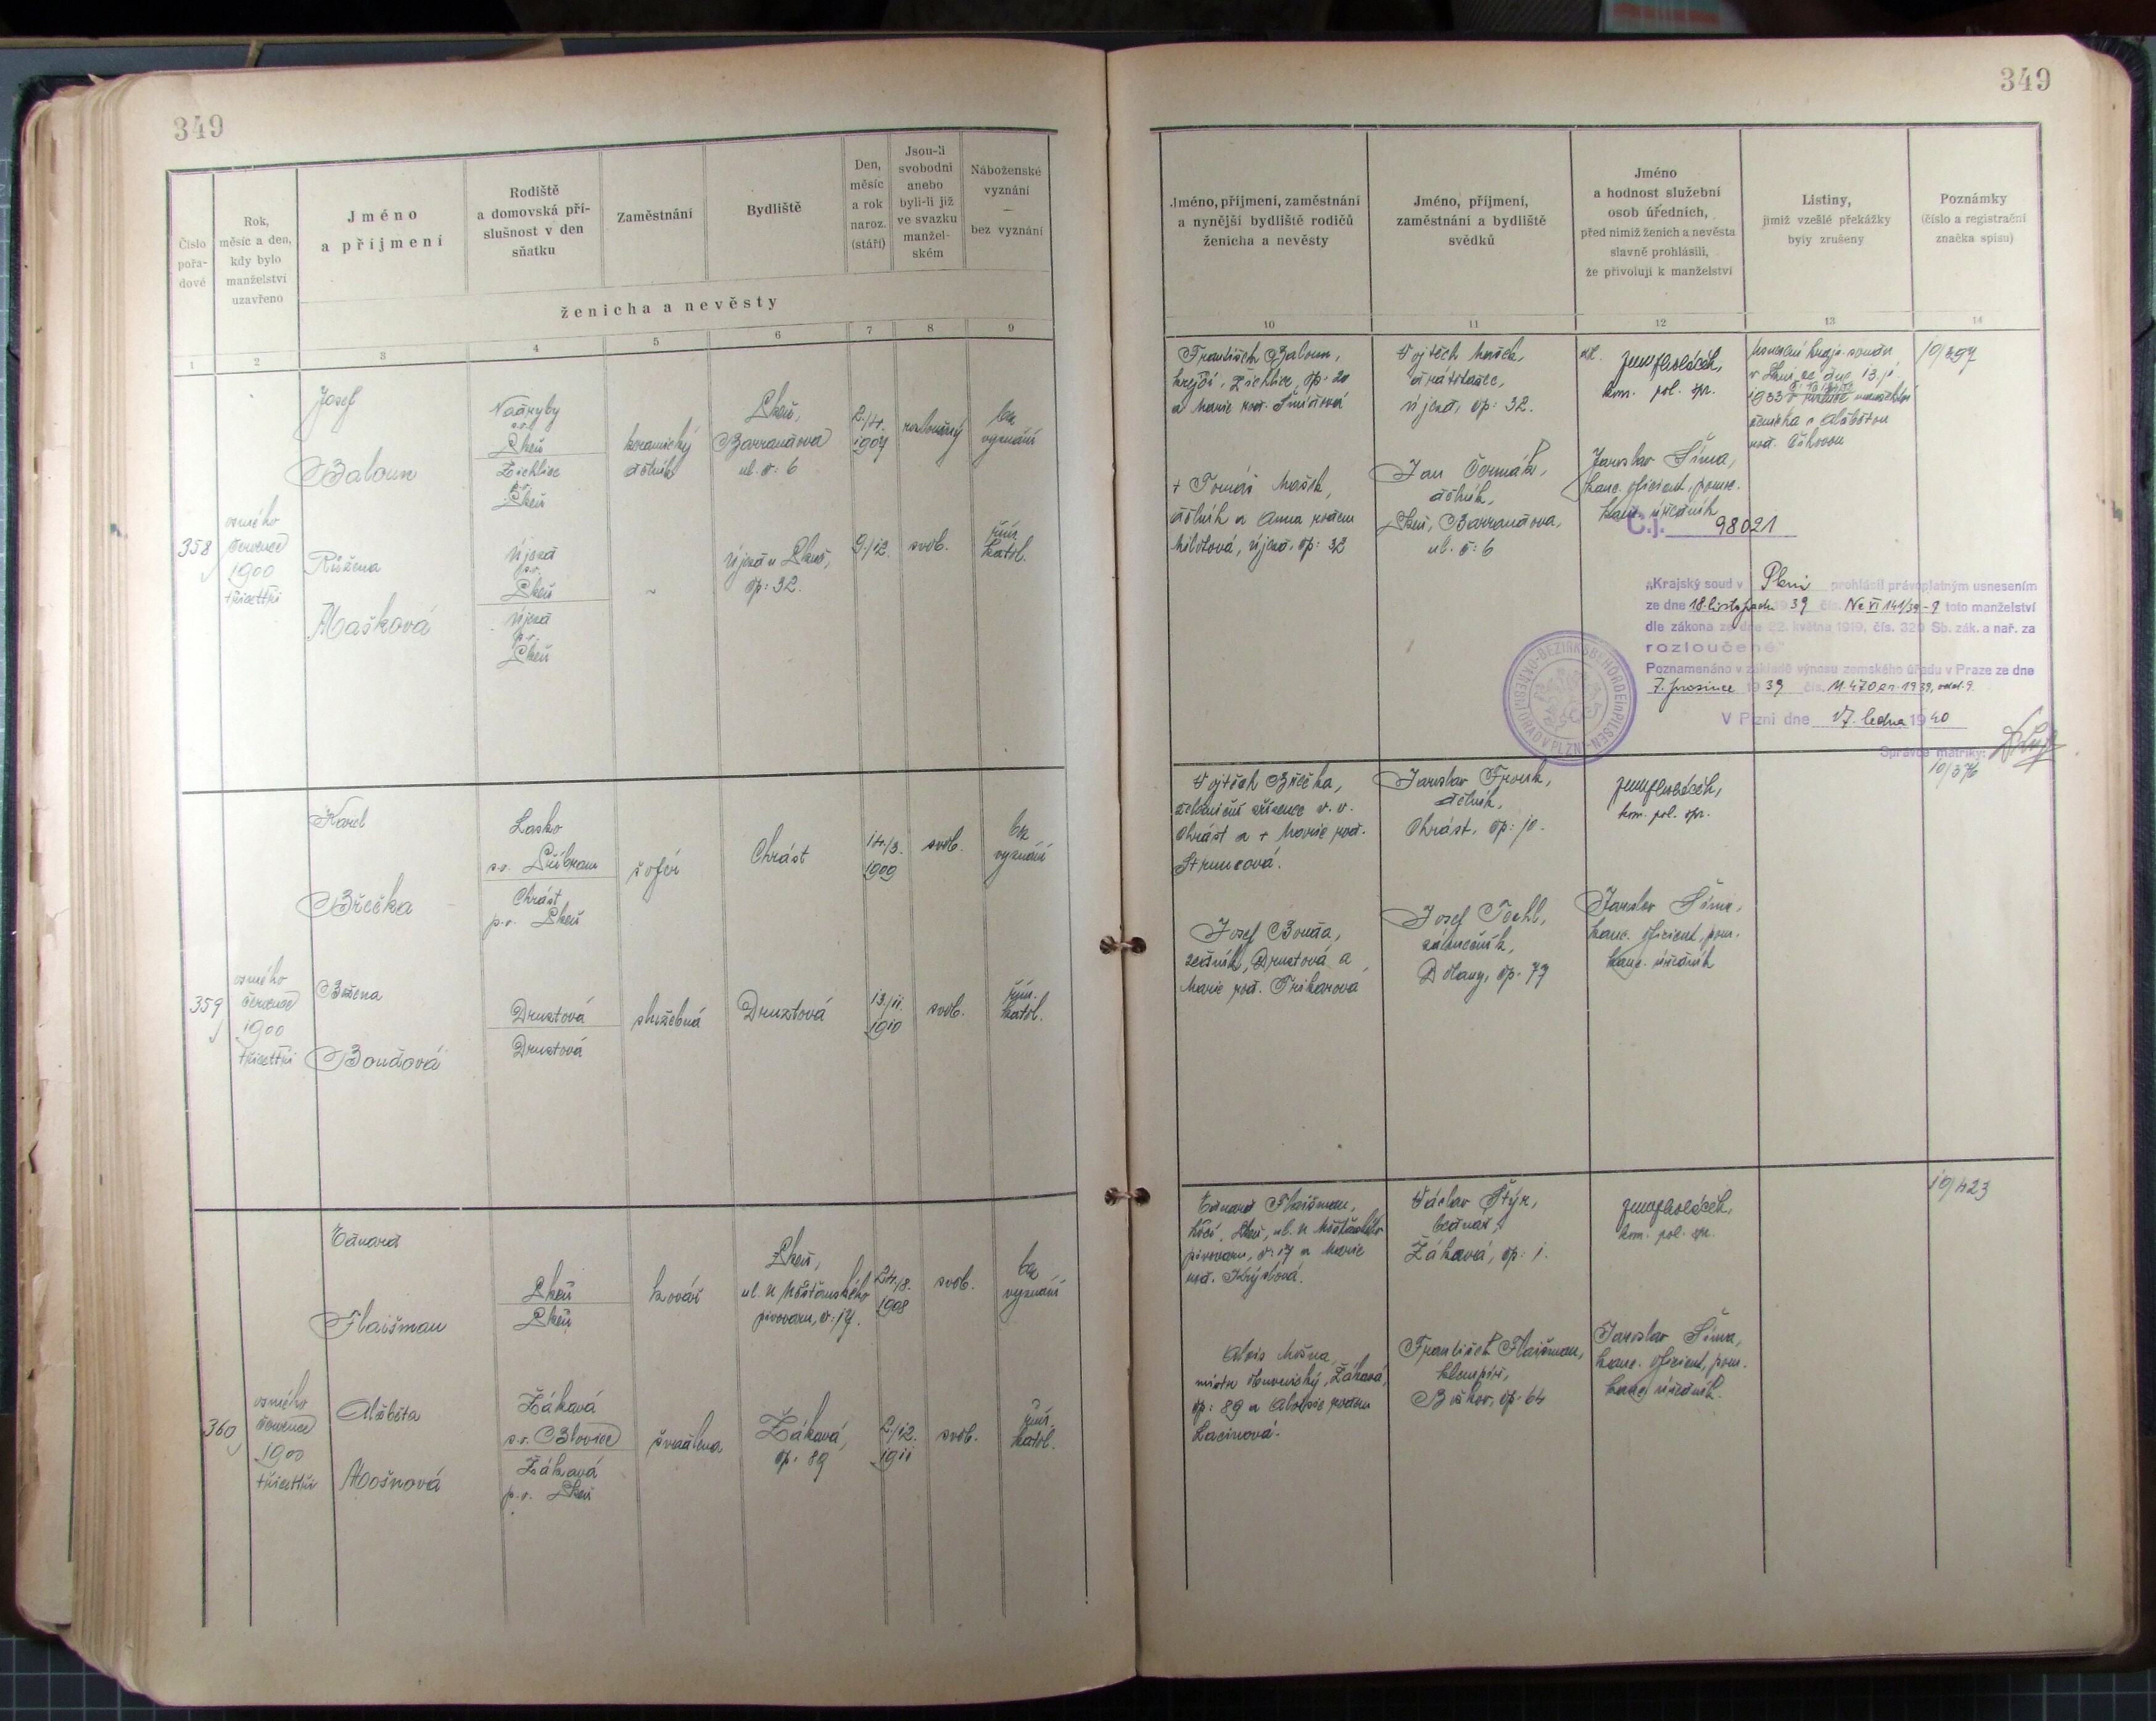 349
Číslo pořadové
Rok, měsíc a den, kdy bylo manželství uzavřeno
Jméno a příjmení
Rodiště a domovská příslušnost v den sňatku
Zaměstnání
Bydliště
Den, měsíc a rok naroz. (stáří)
Jsou-li svobodni anebo byli-li již ve svazku manželském
Náboženské vyznání — bez vyznání
ženicha a nevěsty
1 2 3 4 5 6 7 8 9
358
osmého
července
1900
třicettři
Josef
Baloun
Nadryby
Plzeň
Žichlice
Plzeň
keramický
dělník
Plzeň,
Barrandova
ul. č: 6
2./4.
1904
rozloučený
bez
vyznání
Růžena
Mašková
Újezd
p.o.
Plzeň
Újezd
p.o.
Plzeň
Újezd u Plzně,
čp: 32.
9./12.
svob.
řím.
katol.
359
osmého
července
1900
třicettři
Karel
Břečka
Lasko
s.o. Příbram
Chrást
p.o. Plzeň
šofér
Chrást
14./3.
1909
svob.
bez
vyznání
Božena
Boudová
Druztová
Druztová
služebná
Druztová
13./11.
1910
svob.
řím.
katol.
360
osmého
července
1900
třicettři
Eduard
Flaišman
Plzeň
Plzeň
kovář
Plzeň,
ul. U Měšťanského
pivovaru, č: 17.
24./8.
1908
svob.
bez
vyznání
Alžběta
Mošnová
Žákavá
s.o. Blovice
Žákavá
p.o. Plzeň
švadlena
Žákavá,
čp. 89
2./12.
1911
svob.
řím.
katol.
349
Jméno, příjmení, zaměstnání a nynější bydliště rodičů ženicha a nevěsty
Jméno, příjmení, zaměstnání a bydliště svědků
Jméno a hodnost služební osob úředních, před nimiž ženich a nevěsta slavně prohlásili, že přivolují k manželství
Listiny, jimiž vzešlé překážky byly zrušeny
Poznámky (číslo a registrační značka spisu)
10 11 12 13 14
František Baloun,
krejčí, Žichlice, čp. 20
a Marie roz. Šmídová
Vojtěch Mašek,
Újezd, čp: 32.
kom. pol. spr.
Usnesení kraj. soudu
v Plzni ze dne 13./1.
1933
manželství
ženicha s Alžbětou
10/397
+ Tomáš Mašek,
dělník a Anna rodem
Milotová, Újezd, čp: 32
Jan Čermák,
dělník,
Plzeň, Barrandova,
ul. č: 6
Jaroslav Šíma,
kanc. oficient, pomoc.
kanc. úředník
Č.j. 98021
„Krajský soud v Plzni prohlásil právoplatným usnesením
ze dne 18. listopadu 1939 čís. Nc VI 141/39-9 toto manželství
dle zákona ze dne 22. května 1919, čís. 320 Sb. zák. a nař. za
rozloučené."
Poznamenáno v základě výnosu zemského úřadu v Praze ze dne
7. prosince 1939 čís.
V Plzni dne 17. ledna 1940
Správce matriky:
Vojtěch Břečka,
železniční zřízenec v. v.
Chrást a + Marie roz.
Struncová.
Jaroslav Froněk,
dělník,
Chrást, čp: 10.
kom. pol. spr.
10/376
Josef Bouda,
zedník, Druztová a
Marie roz. Trihavová
Josef Pöchl,
zámečník,
Dolany, čp. 77
Jaroslav Šíma,
kanc. oficient, pom.
kanc. úředník
Eduard Flaišman,
kočí, Plzeň, ul. U Měšťanského
pivovaru, č: 17 a Marie
roz. Krýslová.
Václav Štýr,
bednář,
Žákavá, čp: 1.
kom. pol. spr.
10/423
Alois Mošna,
Žákavá,
čp: 89 a Aloisie rodem
Lacinová.
František Flaišman,
klempíř,
Božkov, čp. 64
Jaroslav Šíma,
kanc. oficient, pom.
kanc. úředník.